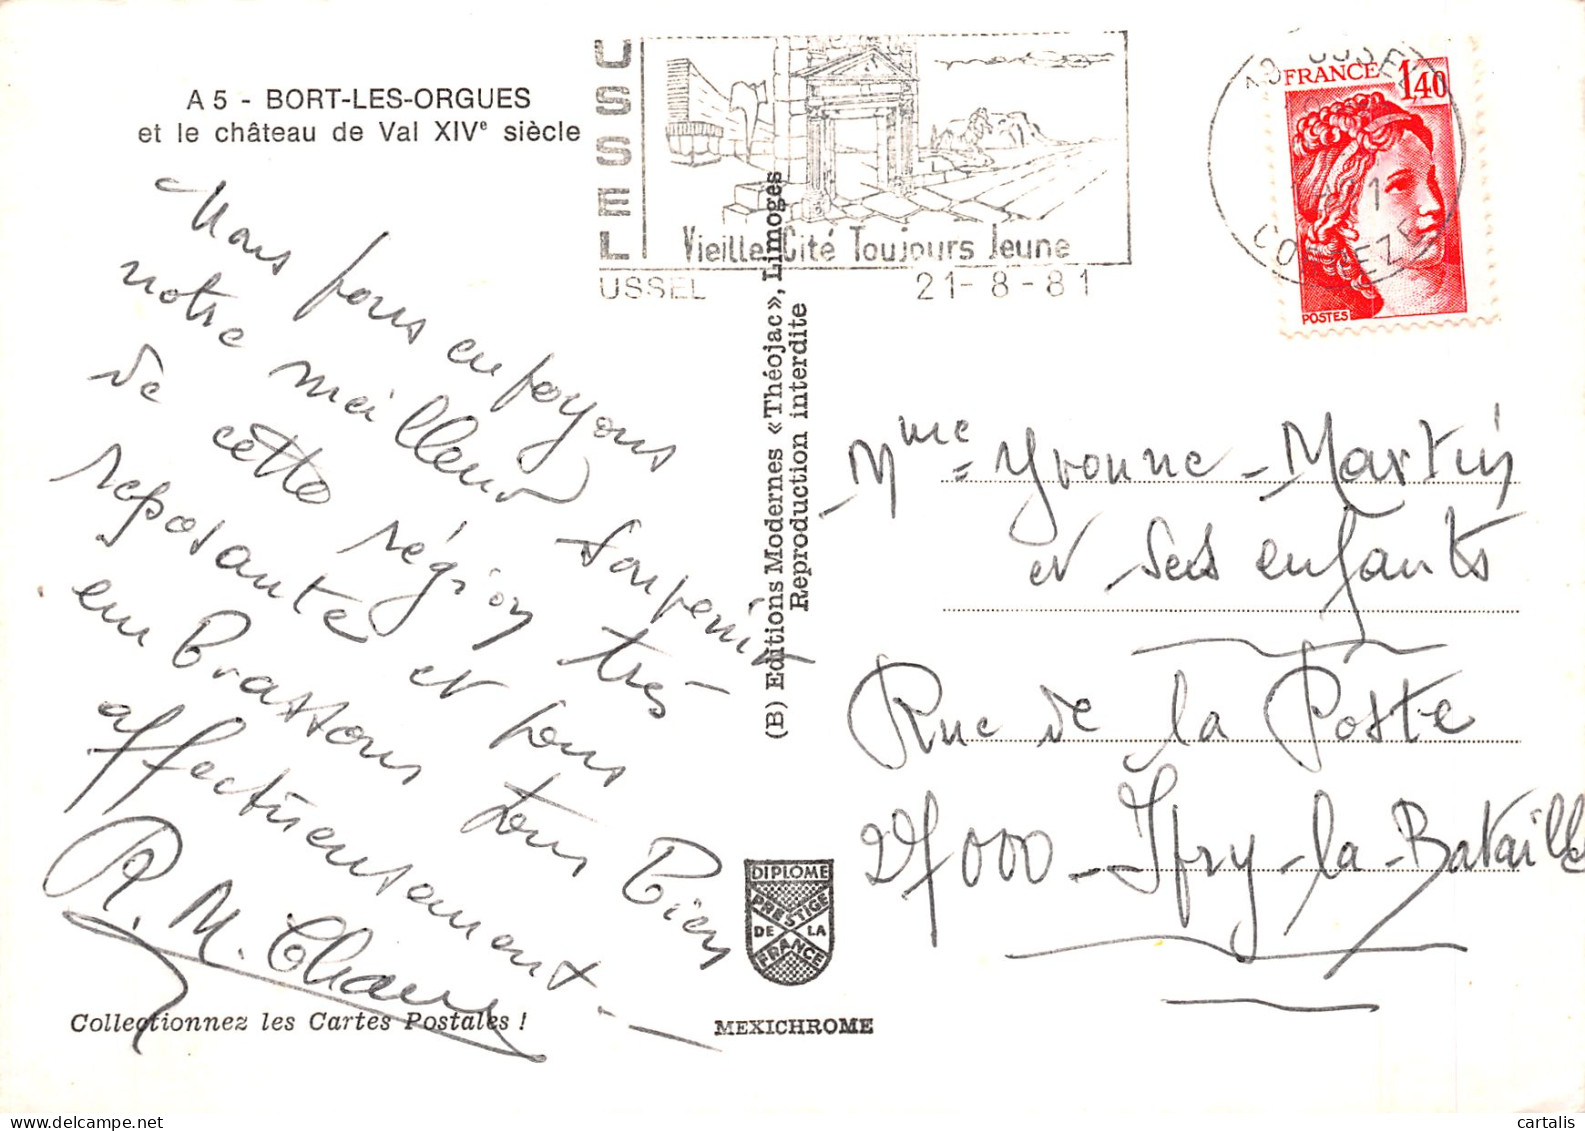 A 5 - BORT-LES-ORGUES
et le château de Val XIVe siècle
USSEL
Vieille Cité Toujours Jeune
USSEL 21-8-81
19 USSEL
CORREZE
FRANCE 1,40
POSTES
Nous vous envoyons
notre meilleur souvenir
de cette région très
reposante et vous
embrassons tous bien
affectueusement -
R. M.
(B) Editions Modernes «Théojac», Limoges
Reproduction interdite
Mme Yvonne - Martin
et ses enfants
Rue de la Poste
27000 - Ifry-la-Bataille
DIPLOME
PRESTIGE
DE LA
FRANCE
Collectionnez les Cartes Postales !
MEXICHROME
cartalis